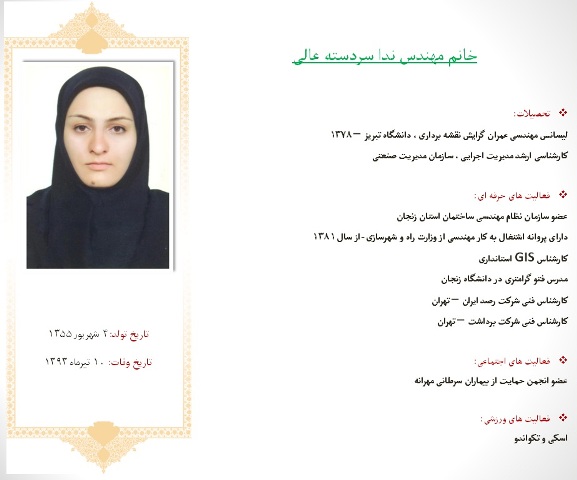 خانم مهندس ندا سردسته عالی
❖ تحصیلات:
لیسانس مهندسی عمران گرایش نقشه برداری ، دانشگاه تبریز – ۱۳۷۸
کارشناسی ارشد مدیریت اجرایی ، سازمان مدیریت صنعتی
❖ فعالیت های حرفه ای:
عضو سازمان نظام مهندسی ساختمان استان زنجان
دارای پروانه اشتغال به کار مهندسی از وزارت راه و شهرسازی -از سال ۱۳۸۱
کارشناس GIS استانداری
مدرس فتو گرامتری در دانشگاه زنجان
کارشناس فنی شرکت رصد ایران – تهران
کارشناس فنی شرکت برداشت – تهران
❖ فعالیت های اجتماعی:
عضو انجمن حمایت از بیماران سرطانی مهرانه
❖ فعالیت های ورزشی:
اسکی و تکواندو
تاریخ تولد: ۴ شهریور ۱۳۵۵
تاریخ وفات: ۱۰ تیرماه ۱۳۹۳